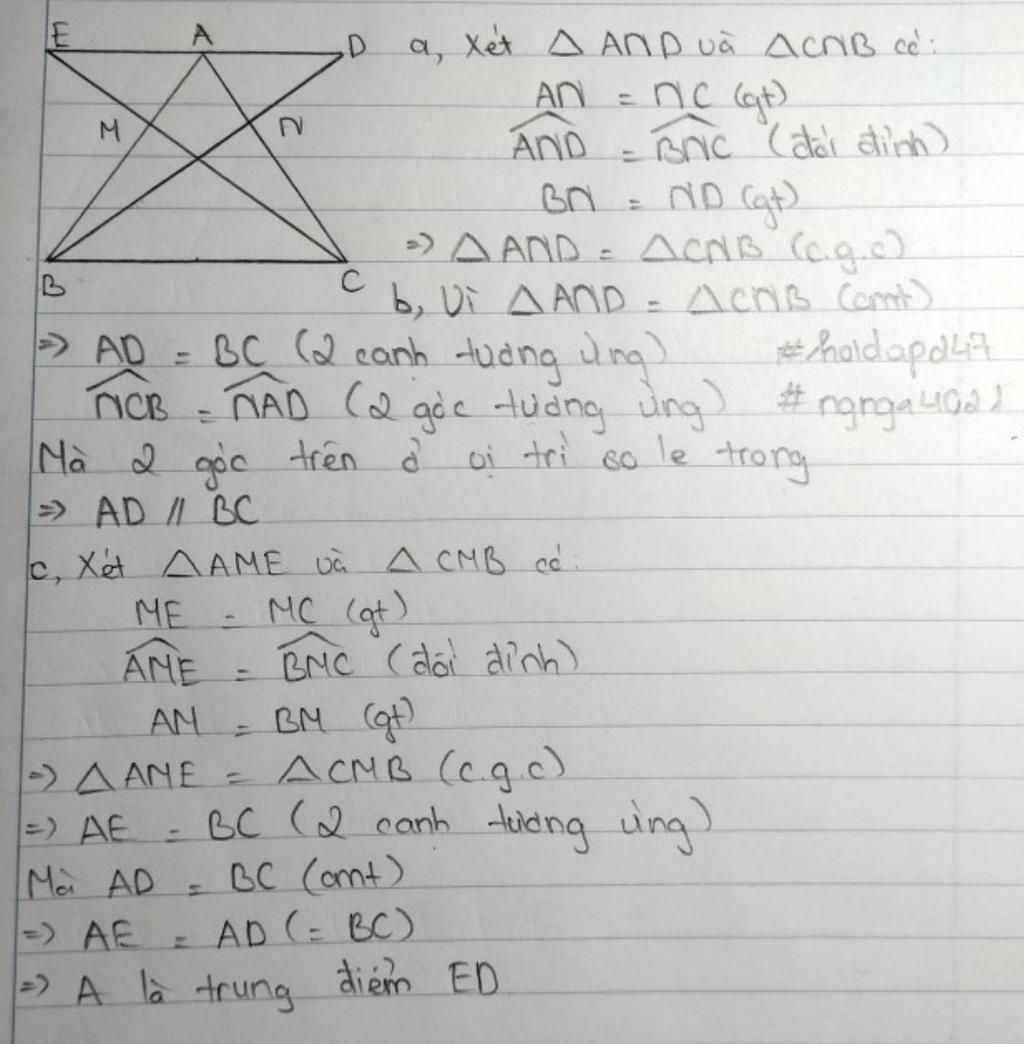 E A D
M N
B C
a, Xét △ AND và △CNB có:
AN = NC (gt)
AND = BNC (đối đỉnh)
BN = ND (gt)
=> △AND = △CNB (c.g.c)
b, Vì △AND = △CNB (cmt)
=> AD = BC (2 cạnh tương ứng) #hoidap247
NCB = NAD (2 góc tương ứng) #ngnga4621
Mà 2 góc trên ở vị trí so le trong
=> AD // BC
c, Xét △AME và △ CMB có:
ME = MC (gt)
AME = BMC (đối đỉnh)
AM = BM (gt)
=> △AME = △CMB (c.g.c)
=> AE = BC (2 cạnh tương ứng)
Mà AD = BC (cmt)
=> AE = AD (= BC)
=> A là trung điểm ED